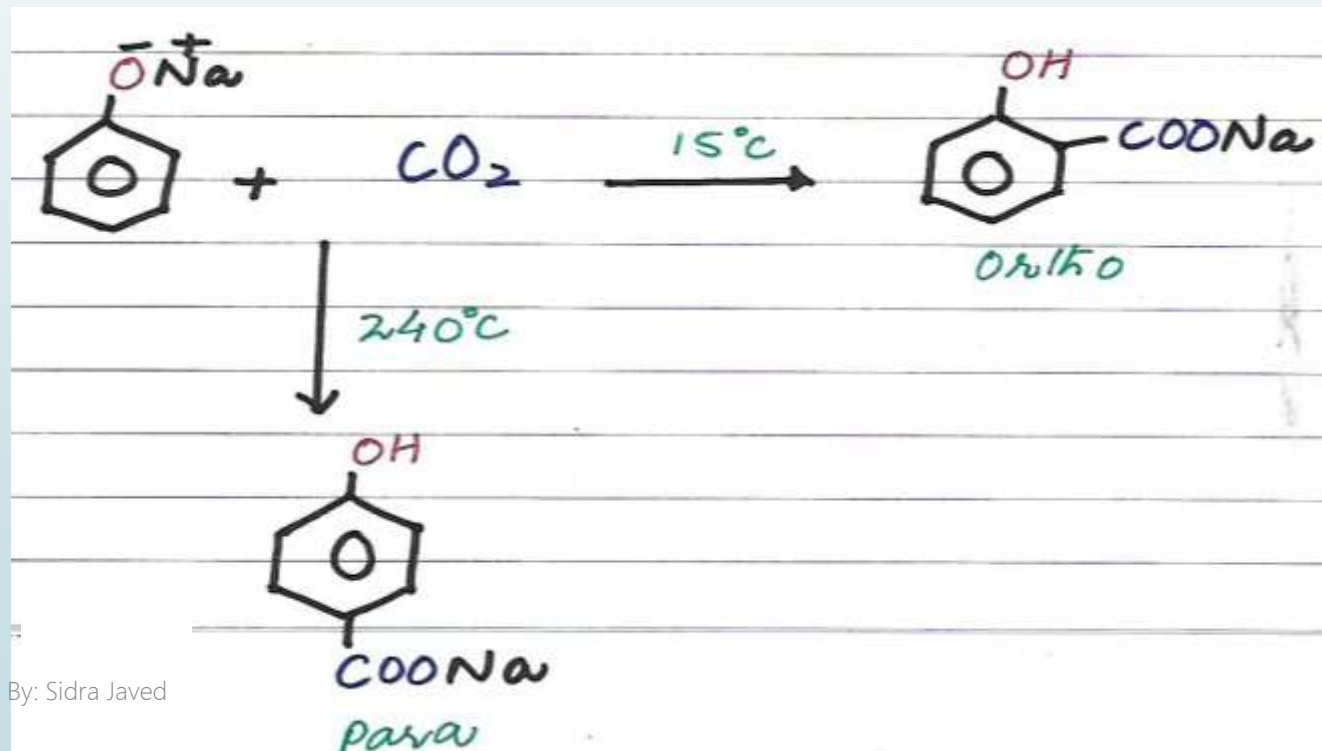 O⁻ Na⁺
+ CO₂ 15°C
OH
COONa
ortho
240°C
OH
COONa
para
By: Sidra Javed